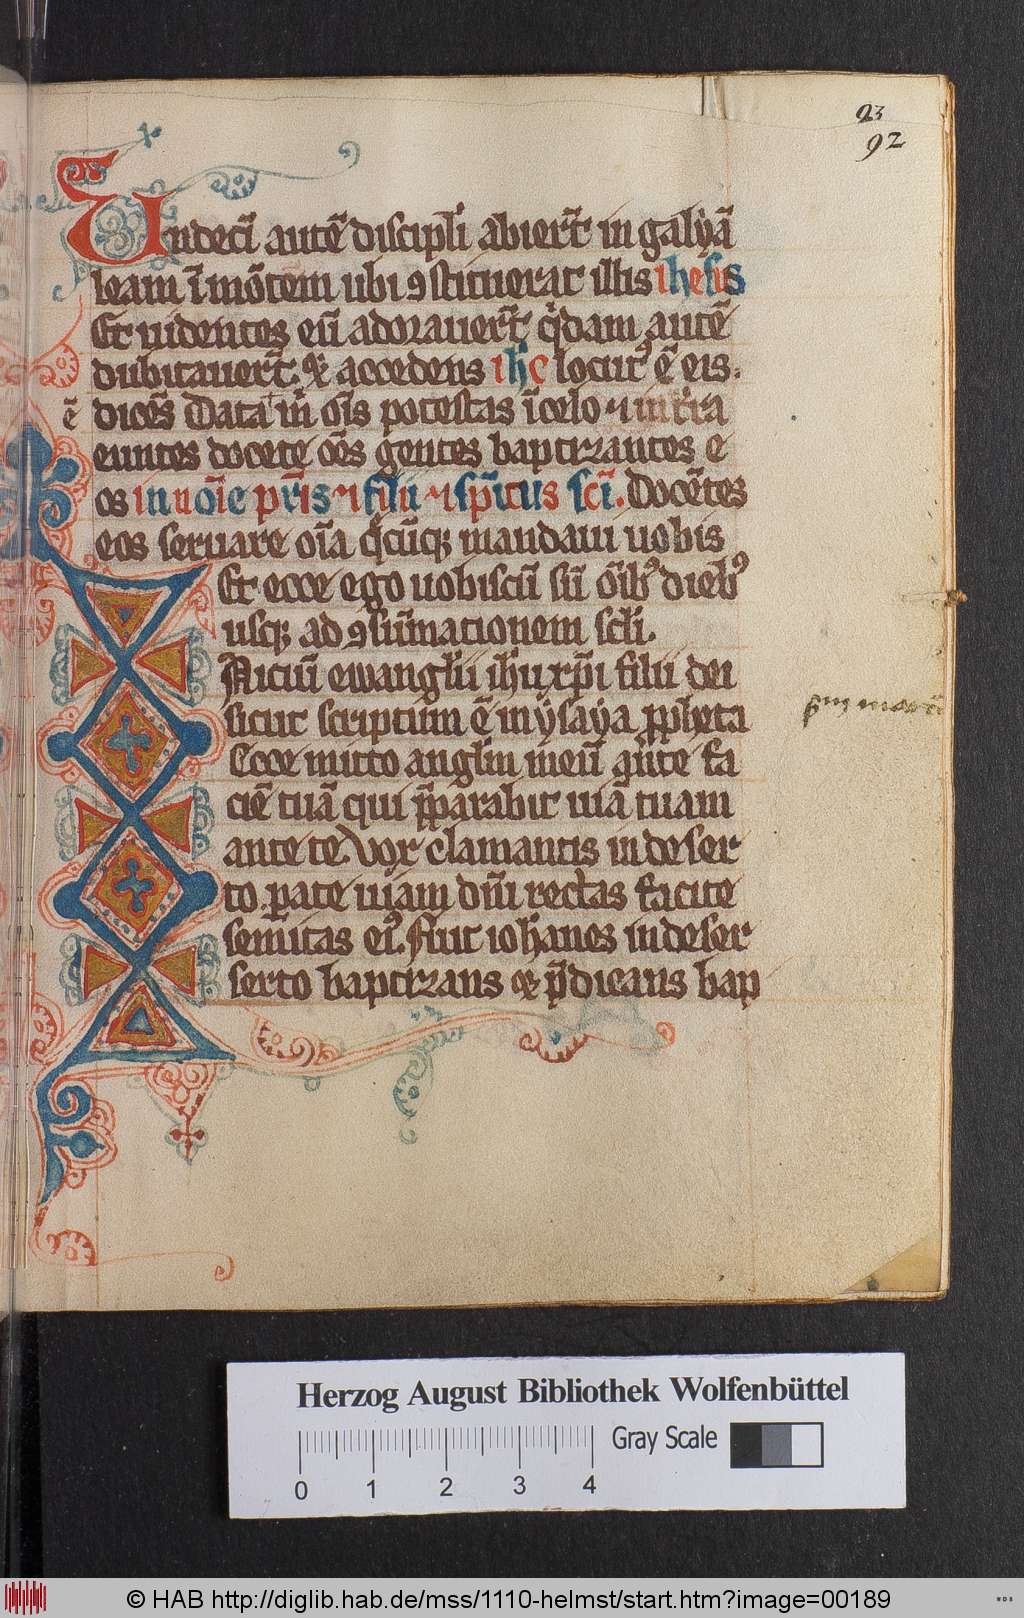 93
92
Undeci᷃ aute᷃ discipl'i abieru᷃t in galyą᷃
leam i᷃ mo᷃tem ubi ꝯstituerat illis ihesus
Et uidentes eu᷃ adorauer᷃t q'dam aute᷃
dubitauer᷃t. ⁊ accedens ihc locut᷒ e᷃ eis.
e᷃ dice᷃s Data m᷃ o᷃is potestas i᷃ celo ⁊ in t'ra
euntes docete o᷃es gentes baptizantes e
os in no᷃ie pr᷃is ⁊ filii ⁊ sp᷃itus sc᷃i. Doce᷃tes
eos seruare o᷃ia q᷃cu᷃qꝫ mandaui uobis
Et ecce ego uobiscu᷃ su᷃ o᷃ib᷒ dieb᷒
usqꝫ ad ꝯsu᷃mationem sc'li.
Niciu᷃ ewangl'ii ih'u xp᷃i filii dei
sicut scriptum e᷃ in ysaya ꝓpheta
Ecce mitto angl'm meu᷃ q᷃ an᷃te fa
cie᷃ tua᷃ qui p᷃parabit uia᷃ tuam
ante te. Vox clamantis in deser
to. ꝑate uiam dn᷃i rectas facite
semitas ei᷒. Fuit ioh'anes in deser
serto baptizans ⁊ p᷃dicans bap
Herzog August Bibliothek Wolfenbüttel
Gray Scale
0 1 2 3 4
© HAB http://diglib.hab.de/mss/1110-helmst/start.htm?image=00189